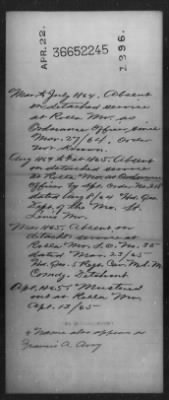 APR. 22.
36652245
1396.
Mar & July 1864. Absent
on detached service
at Rolla Mo. as
Ordnance Officer since
Mar. 27/64. Order
not known.
Aug 1864 & Feb 1865. Absent
on detached service
at Rolla Mo as Ordnance
Officer by Spl Order No.
dated Aug 8/64 Hd. Qrs.
Dept. of the Mo. St.
Louis Mo.
Mar 1865. Absent on
detached service at
Rolla Mo. S.O. No. 35
dated Mar. 23/65
Hd. Qrs. 5 Regt. Cav. M.S.M.
Comdg. Detachmt
Apl. 1865. Mustered
out at Rolla Mo
Apl. 13/65
Name also appears as
Francis A. Avy